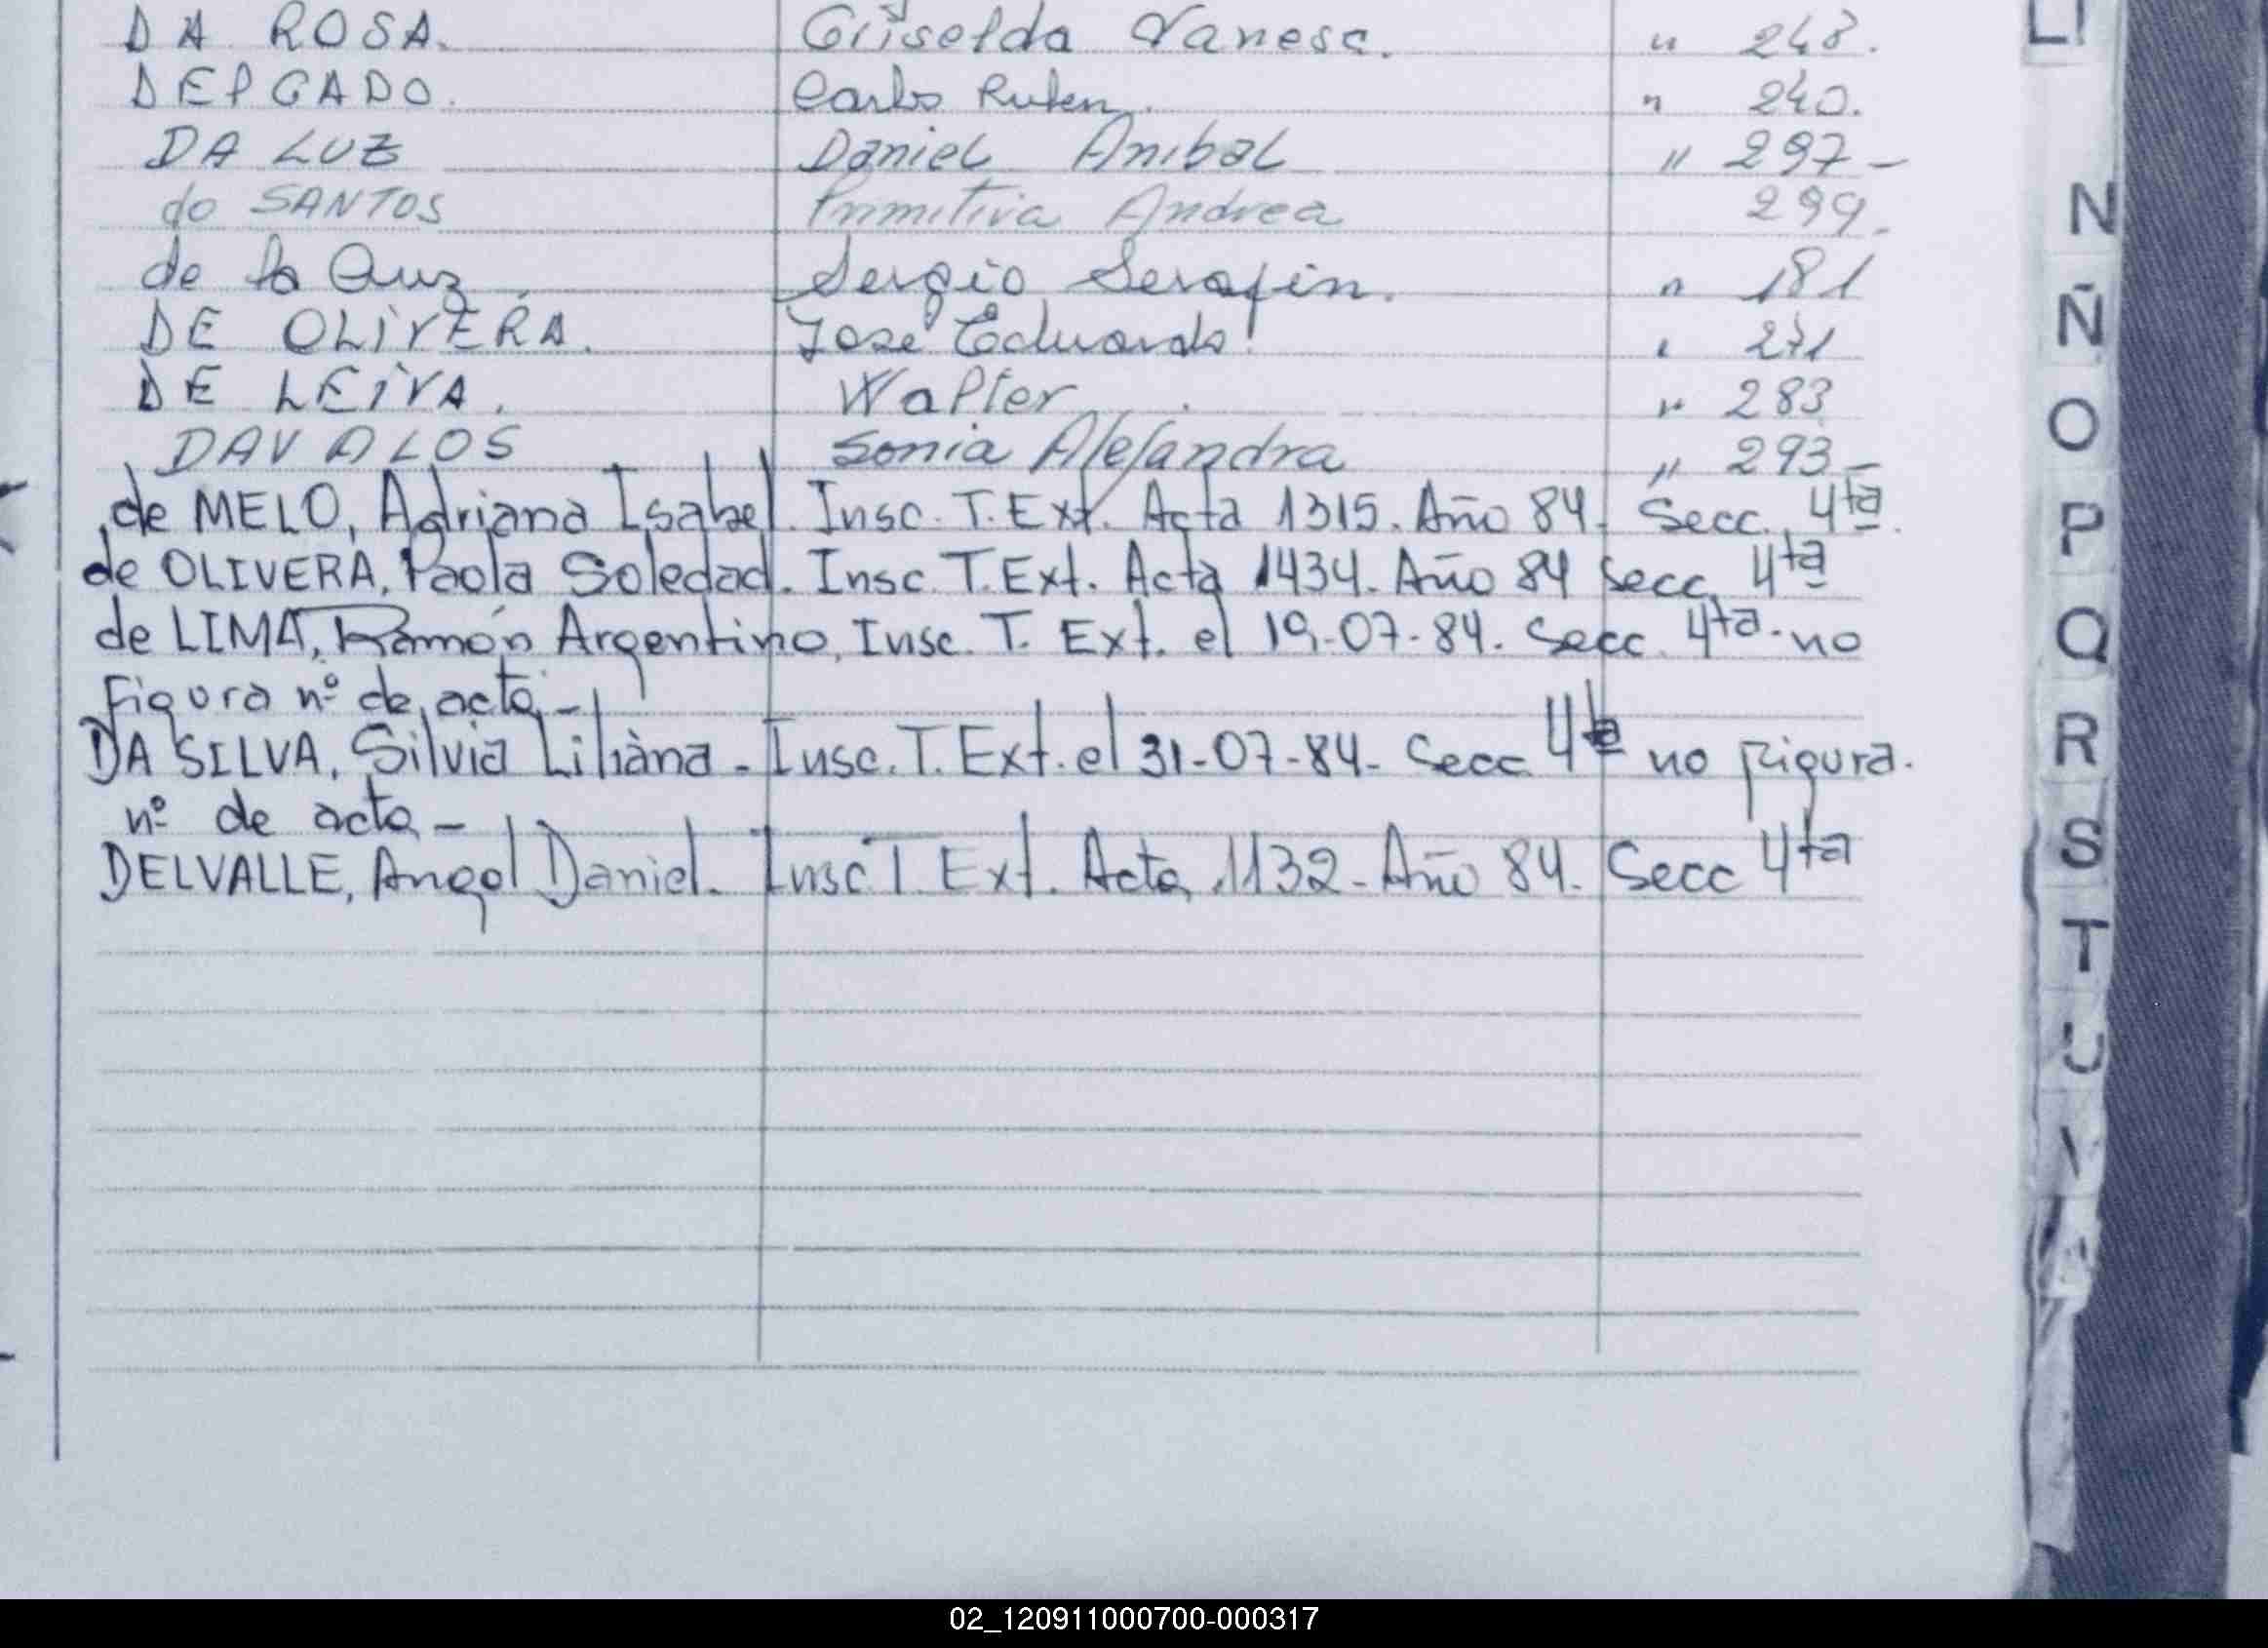 DA ROSA. Griselda Vanesa. " 248.
DELGADO. Carlos Ruben. " 240.
DA LUZ Daniel Anibal " 297-
do SANTOS Primitiva Andrea 299.
de la Cruz Sergio Serafin. " 181
DE OLIVERA. Jose Eduardo " 271
DE LEIVA. Walter " 283
DAVALOS Sonia Alejandra " 293-
de MELO, Adriana Isabel. Insc. T. Ext. Acta 1315. Año 84. Secc. 4ta.
de OLIVERA, Paola Soledad. Insc. T. Ext. Acta 1434. Año 84 Secc. 4ta
de LIMA, Ramón Argentino, Insc. T. Ext. el 19-07-84. Secc. 4ta. no
figura nº de acta-
DA SILVA, Silvia Liliana - Insc. T. Ext. el 31-07-84- Secc. 4ta no figura.
nº de acta-
DELVALLE, Angel Daniel. Insc T. Ext. Acta 1132-Año 84. Secc 4ta
LL
N
Ñ
O
P
Q
R
S
T
U
V
02_120911000700-000317